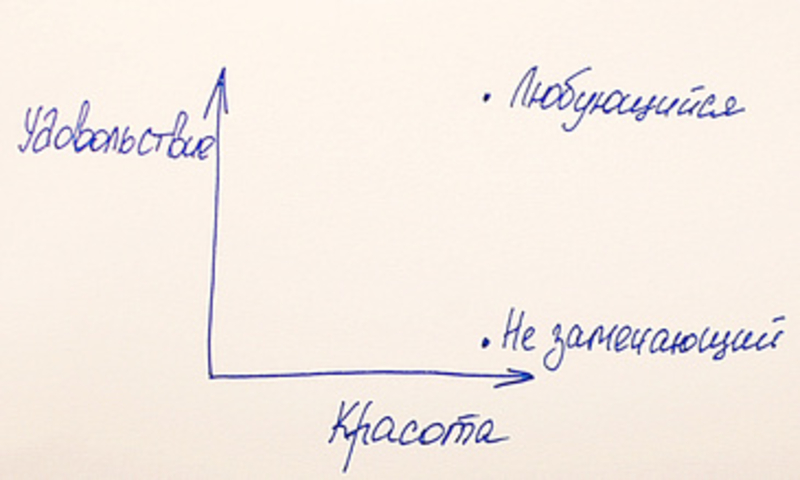 Удовольствие
Любующийся
Не замечающий
Красота